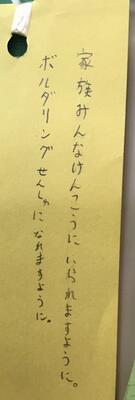 家族みんなけんこうにいられますように。
ボルダリングせんしゅになれますように。